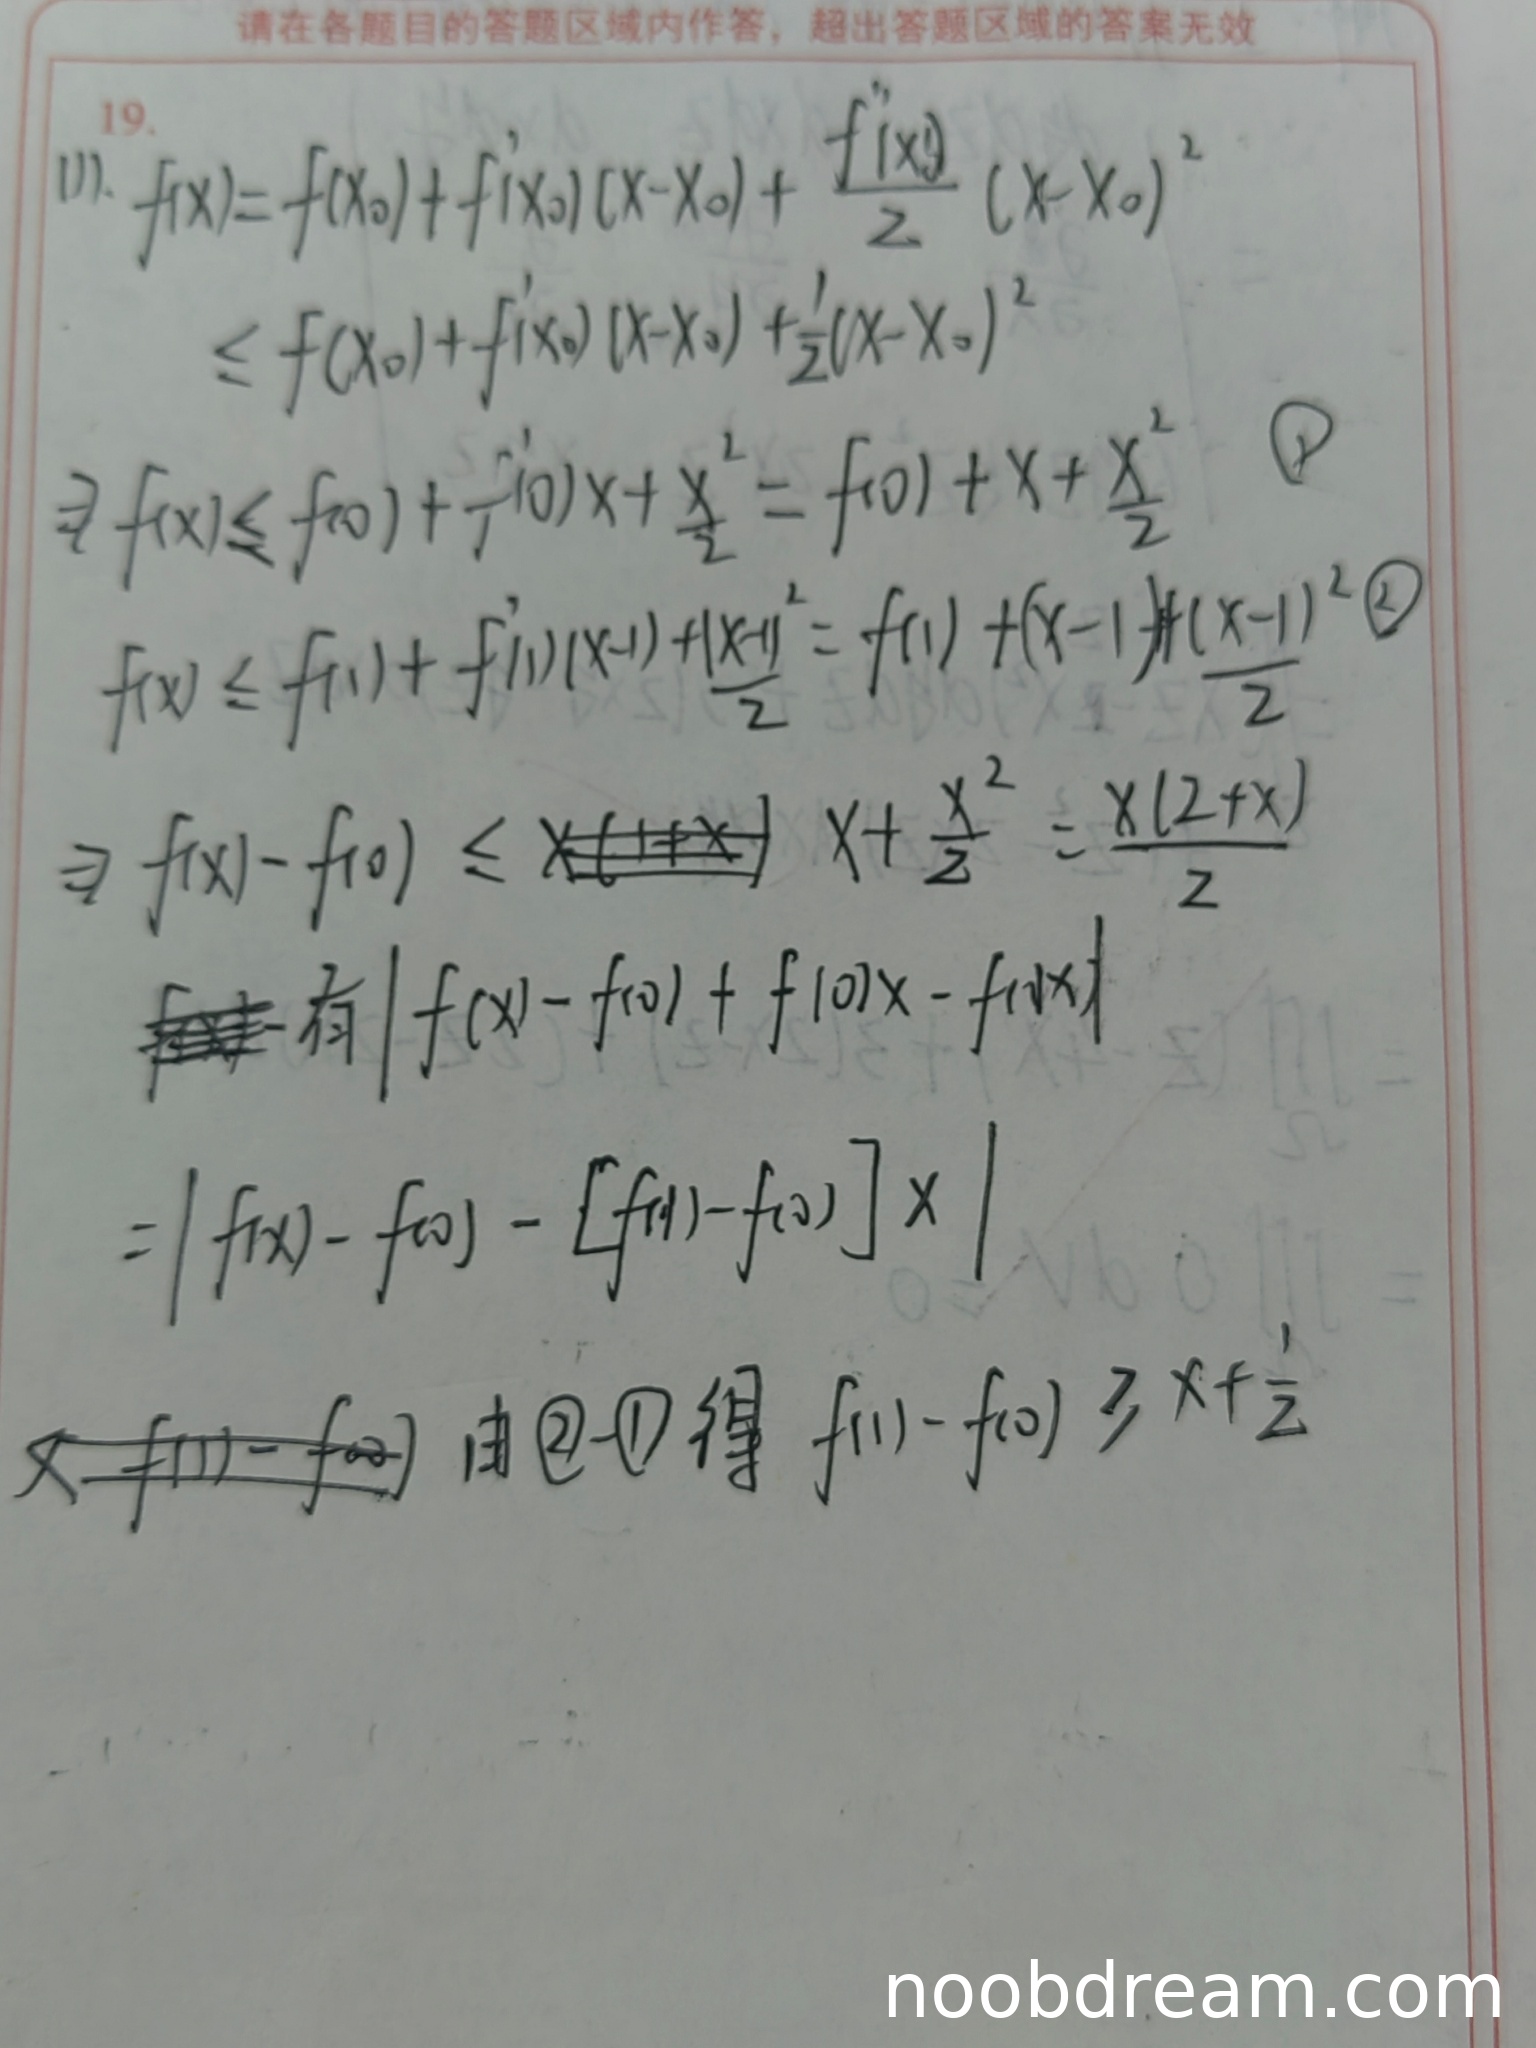 请在各题目的答题区域内作答，超出答题区域的答案无效
19.
(1). f(x)=f(x₀)+f'(x₀)(x-x₀)+f''(x)/2 (x-x₀)²
≤ f(x₀)+f'(x₀)(x-x₀)+1/2(x-x₀)²
⇒ f(x)≤ f(0)+f'(0)x+x²/2 = f(0)+x+x²/2 ①
f(x) ≤ f(1)+f'(1)(x-1)+(x-1)²/2 = f(1)+(x-1)+(x-1)²/2 ②
⇒ f(x)-f(0) ≤ x+x²/2 = x(2+x)/2
有|f(x)-f(0)+f(0)x-f(1)x|
=|f(x)-f(0)-[f(1)-f(0)]x|
由②-①得 f(1)-f(0) ≥ x+1/2
noobdream.com